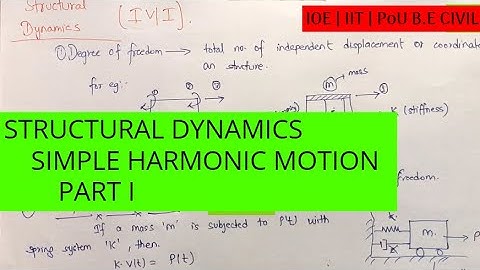 Structural Dynamics (IV/I).
IOE | IIT | PoU B.E CIVIL
① Degree of freedom → total no. of independent displacement or coordinate
an structure.
for eg:
① ② mass
m ①
K (stiffness)
STRUCTURAL DYNAMICS
SIMPLE HARMONIC MOTION
PART I
freedom.
If a mass 'm' is subjected to P(t) with
spring system 'K', then.
K.V(t) = P(t)
K
m.
P